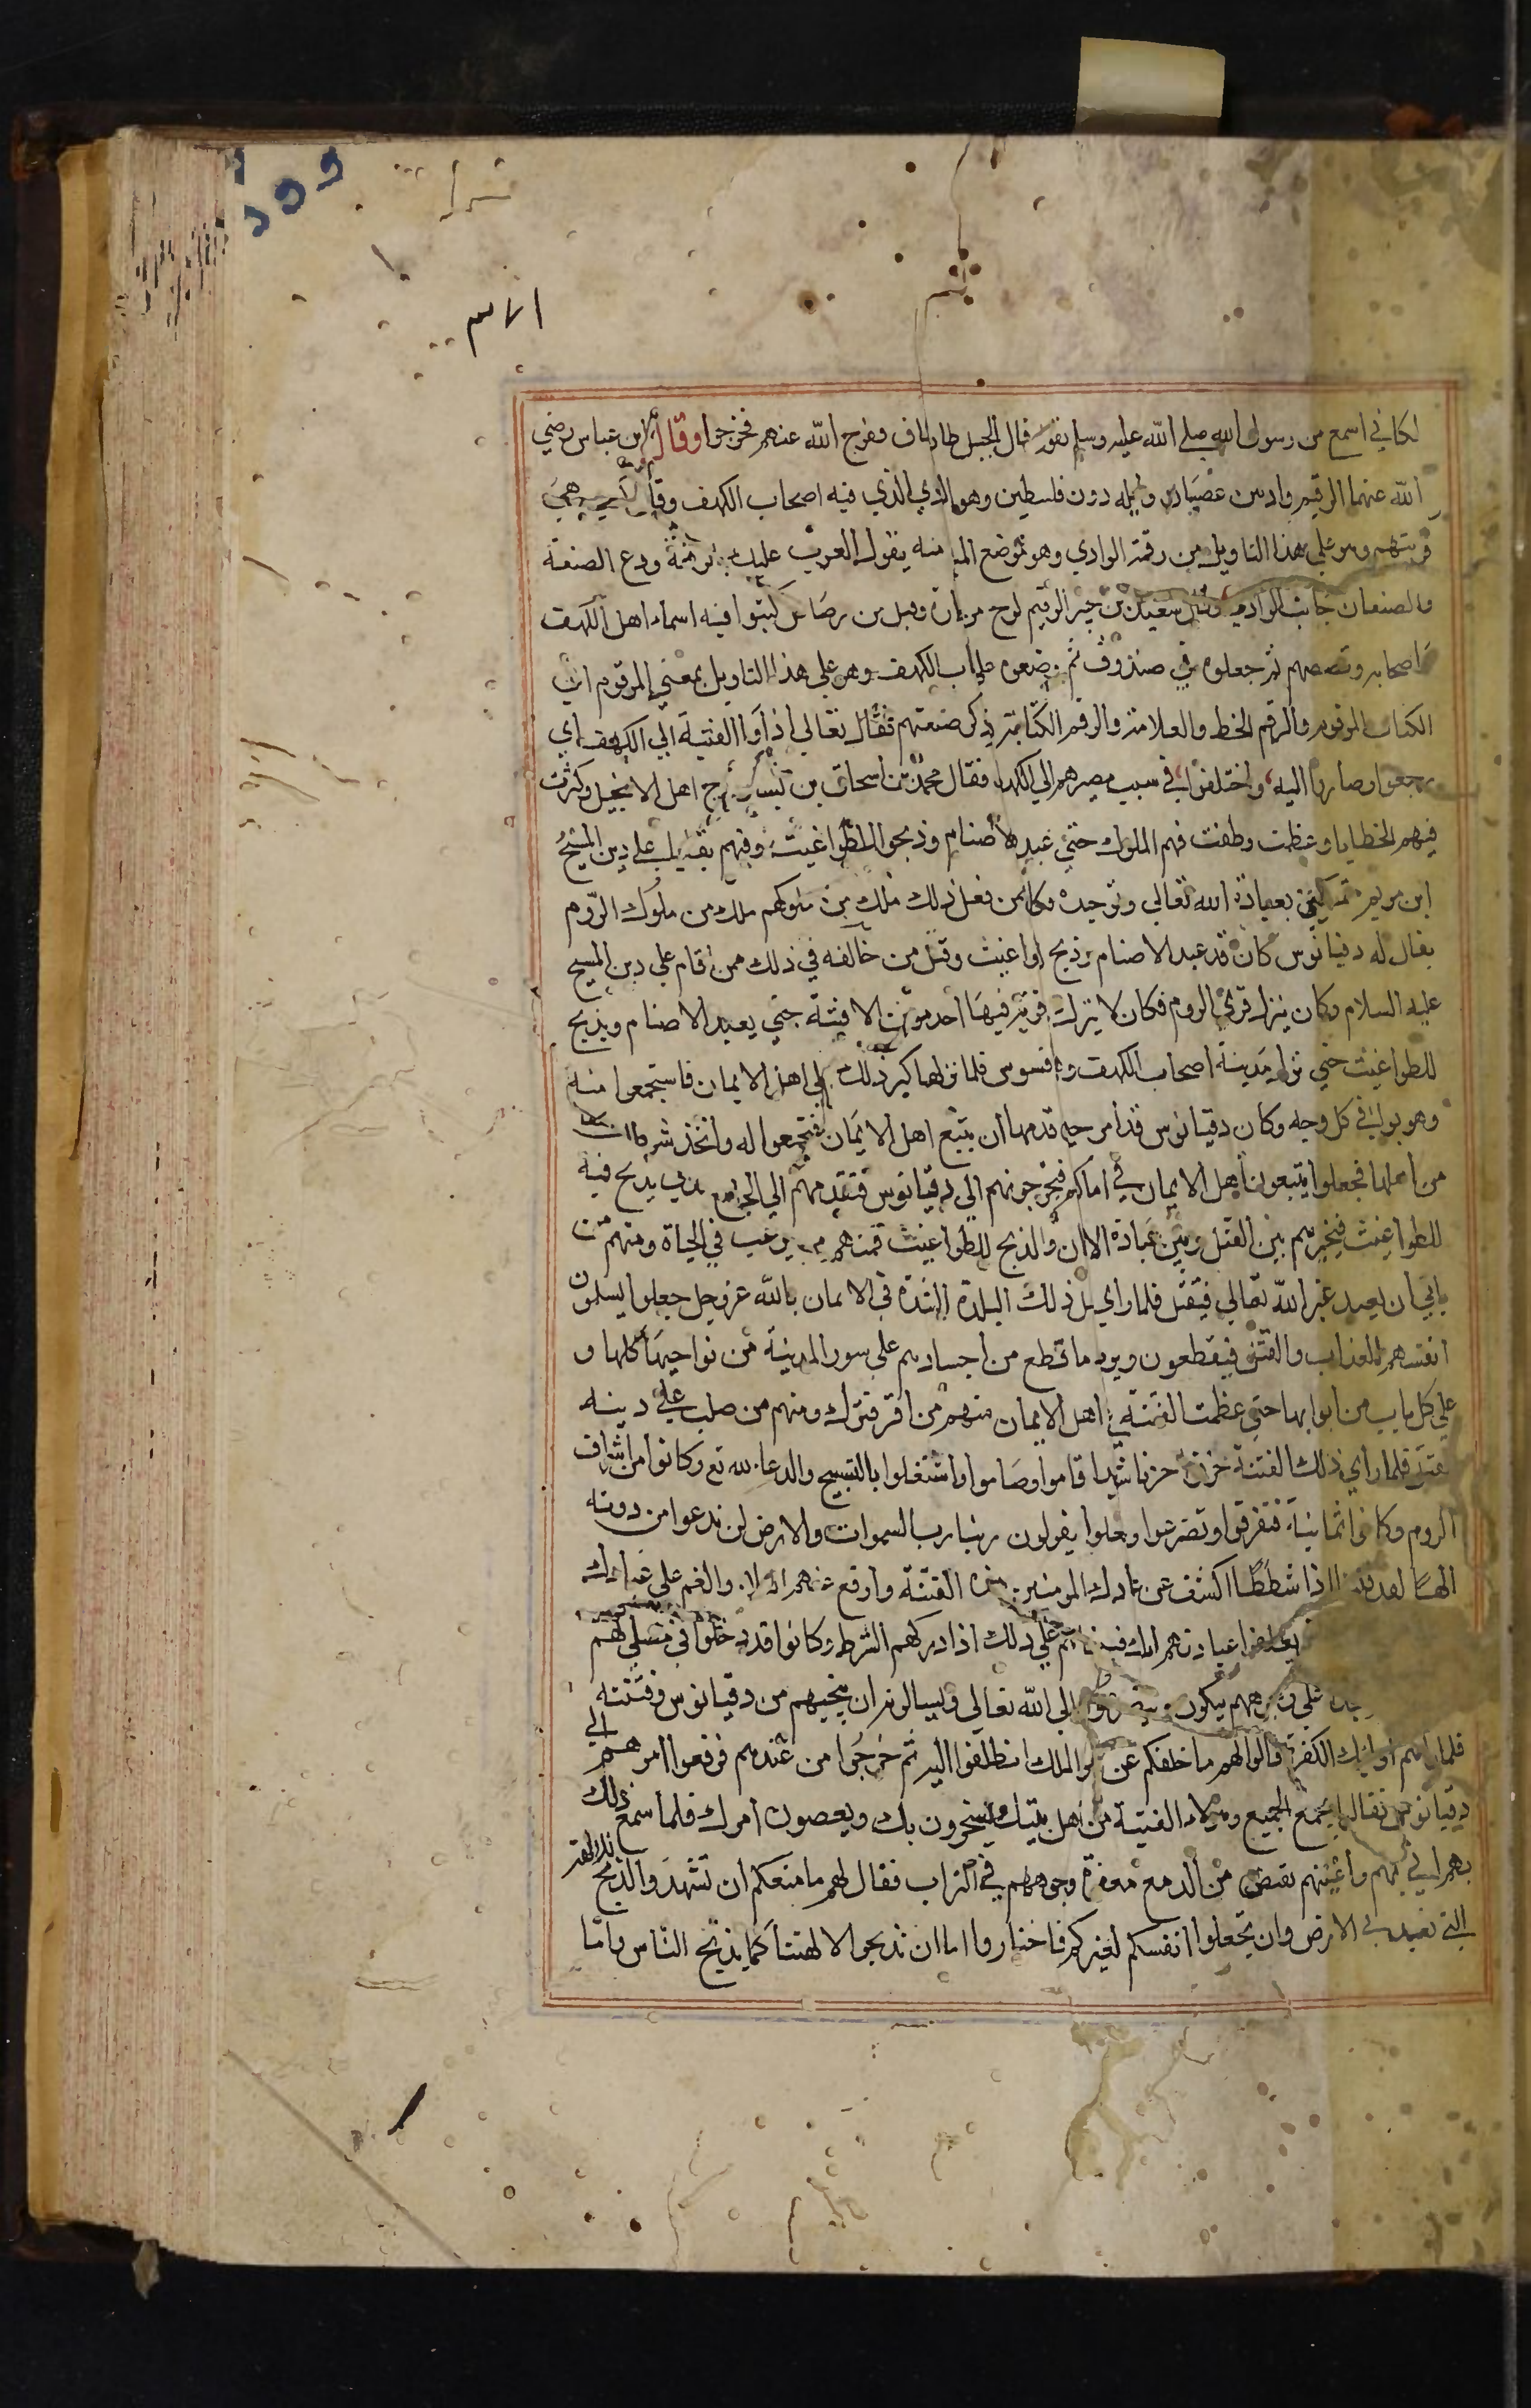 لكاني اسمع من رسول الله صلي الله عليه وسلم يقول قال الجبل طاق طاق ففرج الله عنهم فخرجوا وقال ابن عباس رضي
الله عنهما الرقيم واد بين عضبان وايله دون فلسطين وهو الوادي الذي فيه اصحاب الكهف وقال هي
قريتهم وهو علي هذا التاويل من رقمة الوادي وهو موضع الما منه يقول العرب عليك بالرقمة ودع الصنعة
والصنعان جانب الوادي وقال سعيد بن جبير الرقيم لوح من وقيل من رصاص كتبوا فيه اسماء اهل الكهف
واصحابه وقصصهم ثم جعلوه في صندوق ثم وضعوه علي باب الكهف وهو علي هذا التاويل بمعني المرقوم اي
الكتاب المرقوم والرقم الخط والعلامة والرقم الكتابة ثم ذكر صنعتهم فقال تعالي اذ اوا الفتية الي الكهف اي
رجعوا وصاروا اليه واختلفوا في سبب مصيرهم الي الكهف فقال محمد بن اسحاق بن يسار مرج اهل الانجيل وكثرت
فيهم الخطايا وعظمت وطغت فهم الملوك حتي عبدوا الاصنام وذبحوا للطواغيت وفيهم بقايا علي دين المسيح
ابن مريم متمسكين بعبادة الله تعالي وتوحيده وكان ممن فعل ذلك ملك من ملوكهم ملك من ملوك الروم
يقال له دقيانوس كان قد عبد الاصنام وذبح للطواغيت وقتل من خالفه في ذلك ممن اقام علي دين المسيح
عليه السلام وكان ينزل قري الروم فكان لا يترك في قرية فيها احد مؤمن الا فتنه حتي يعبد الاصنام ويذبح
للطواغيت حتي نزل مدينة اصحاب الكهف وهي افسوس فلما نزلها كبر ذلك علي اهل الايمان فاستجمعوا منه
وهربوا في كل وجه وكان دقيانوس قد امر حين قدمها ان يتبع اهل الايمان فيجمعوا له واتخذ شرطا
من اهلها فجعلوا يتبعون اهل الايمان في اماكنهم فيخرجونهم الي دقيانوس فيقدمهم الي الجامع الذي يذبح فيه
للطواغيت فيخيرهم بين القتل وبين عبادة الاوثان والذبح للطواغيت فمنهم من يرغب في الحياة ومنهم من
يابي ان يعبد غير الله تعالي فيقتل فلما راي اهل ذلك البلدة الشدة في الايمان بالله عز وجل جعلوا يسلمون
انفسهم للعذاب والقتل فيقطعون ويربط ما قطع من اجسادهم علي سور المدينة من نواحيها كلها و
علي كل باب من ابوابها حتي عظمت الفتنة علي اهل الايمان منهم من اقر فترك ومنهم من صلب علي دينه
فقتل فلما راي ذلك الفتية حزنوا حزنا شديدا قاموا وصاموا واشتغلوا بالتسبيح والدعاء لله تع وكانوا من اشراف
الروم وكانوا ثمانية فتفرقوا وتضرعوا وجعلوا يقولون ربنا رب السموات والارض لن ندعوا من دونه
الها لقد قلنا اذا شططا اكشف عن عبادك المومنين هذه الفتنة وارفع عنهم البلاء والغم علي عبادك
عبادتهم اياك فبينما هم علي ذلك اذ ادركهم الشرط وكانوا قد دخلوا في مصلي لهم
علي وجوههم يبكون ويتضرعون الي الله تعالي ويسالونه ان ينجيهم من دقيانوس وفتنته
فلما راهم اوليك الكفرة قالوا لهم ما خلفكم عن امر الملك انطلقوا اليه ثم خرجوا من عندهم فرفعوا امرهم الي
دقيانوس فقالوا نجمع الجميع وهؤلاء الفتية من اهل بيتك يسخرون بك ويعصون امرك فلما سمع ذلك
بهم اتي بهم واعينهم تفيض من الدمع معفرة وجوههم في التراب فقال لهم ما منعكم ان تشهدوا الذبح
التي تعبد في الارض وان تجعلوا انفسكم لغيركم فاختاروا اما ان تذبحوا لالهتنا كما يذبح الناس واما